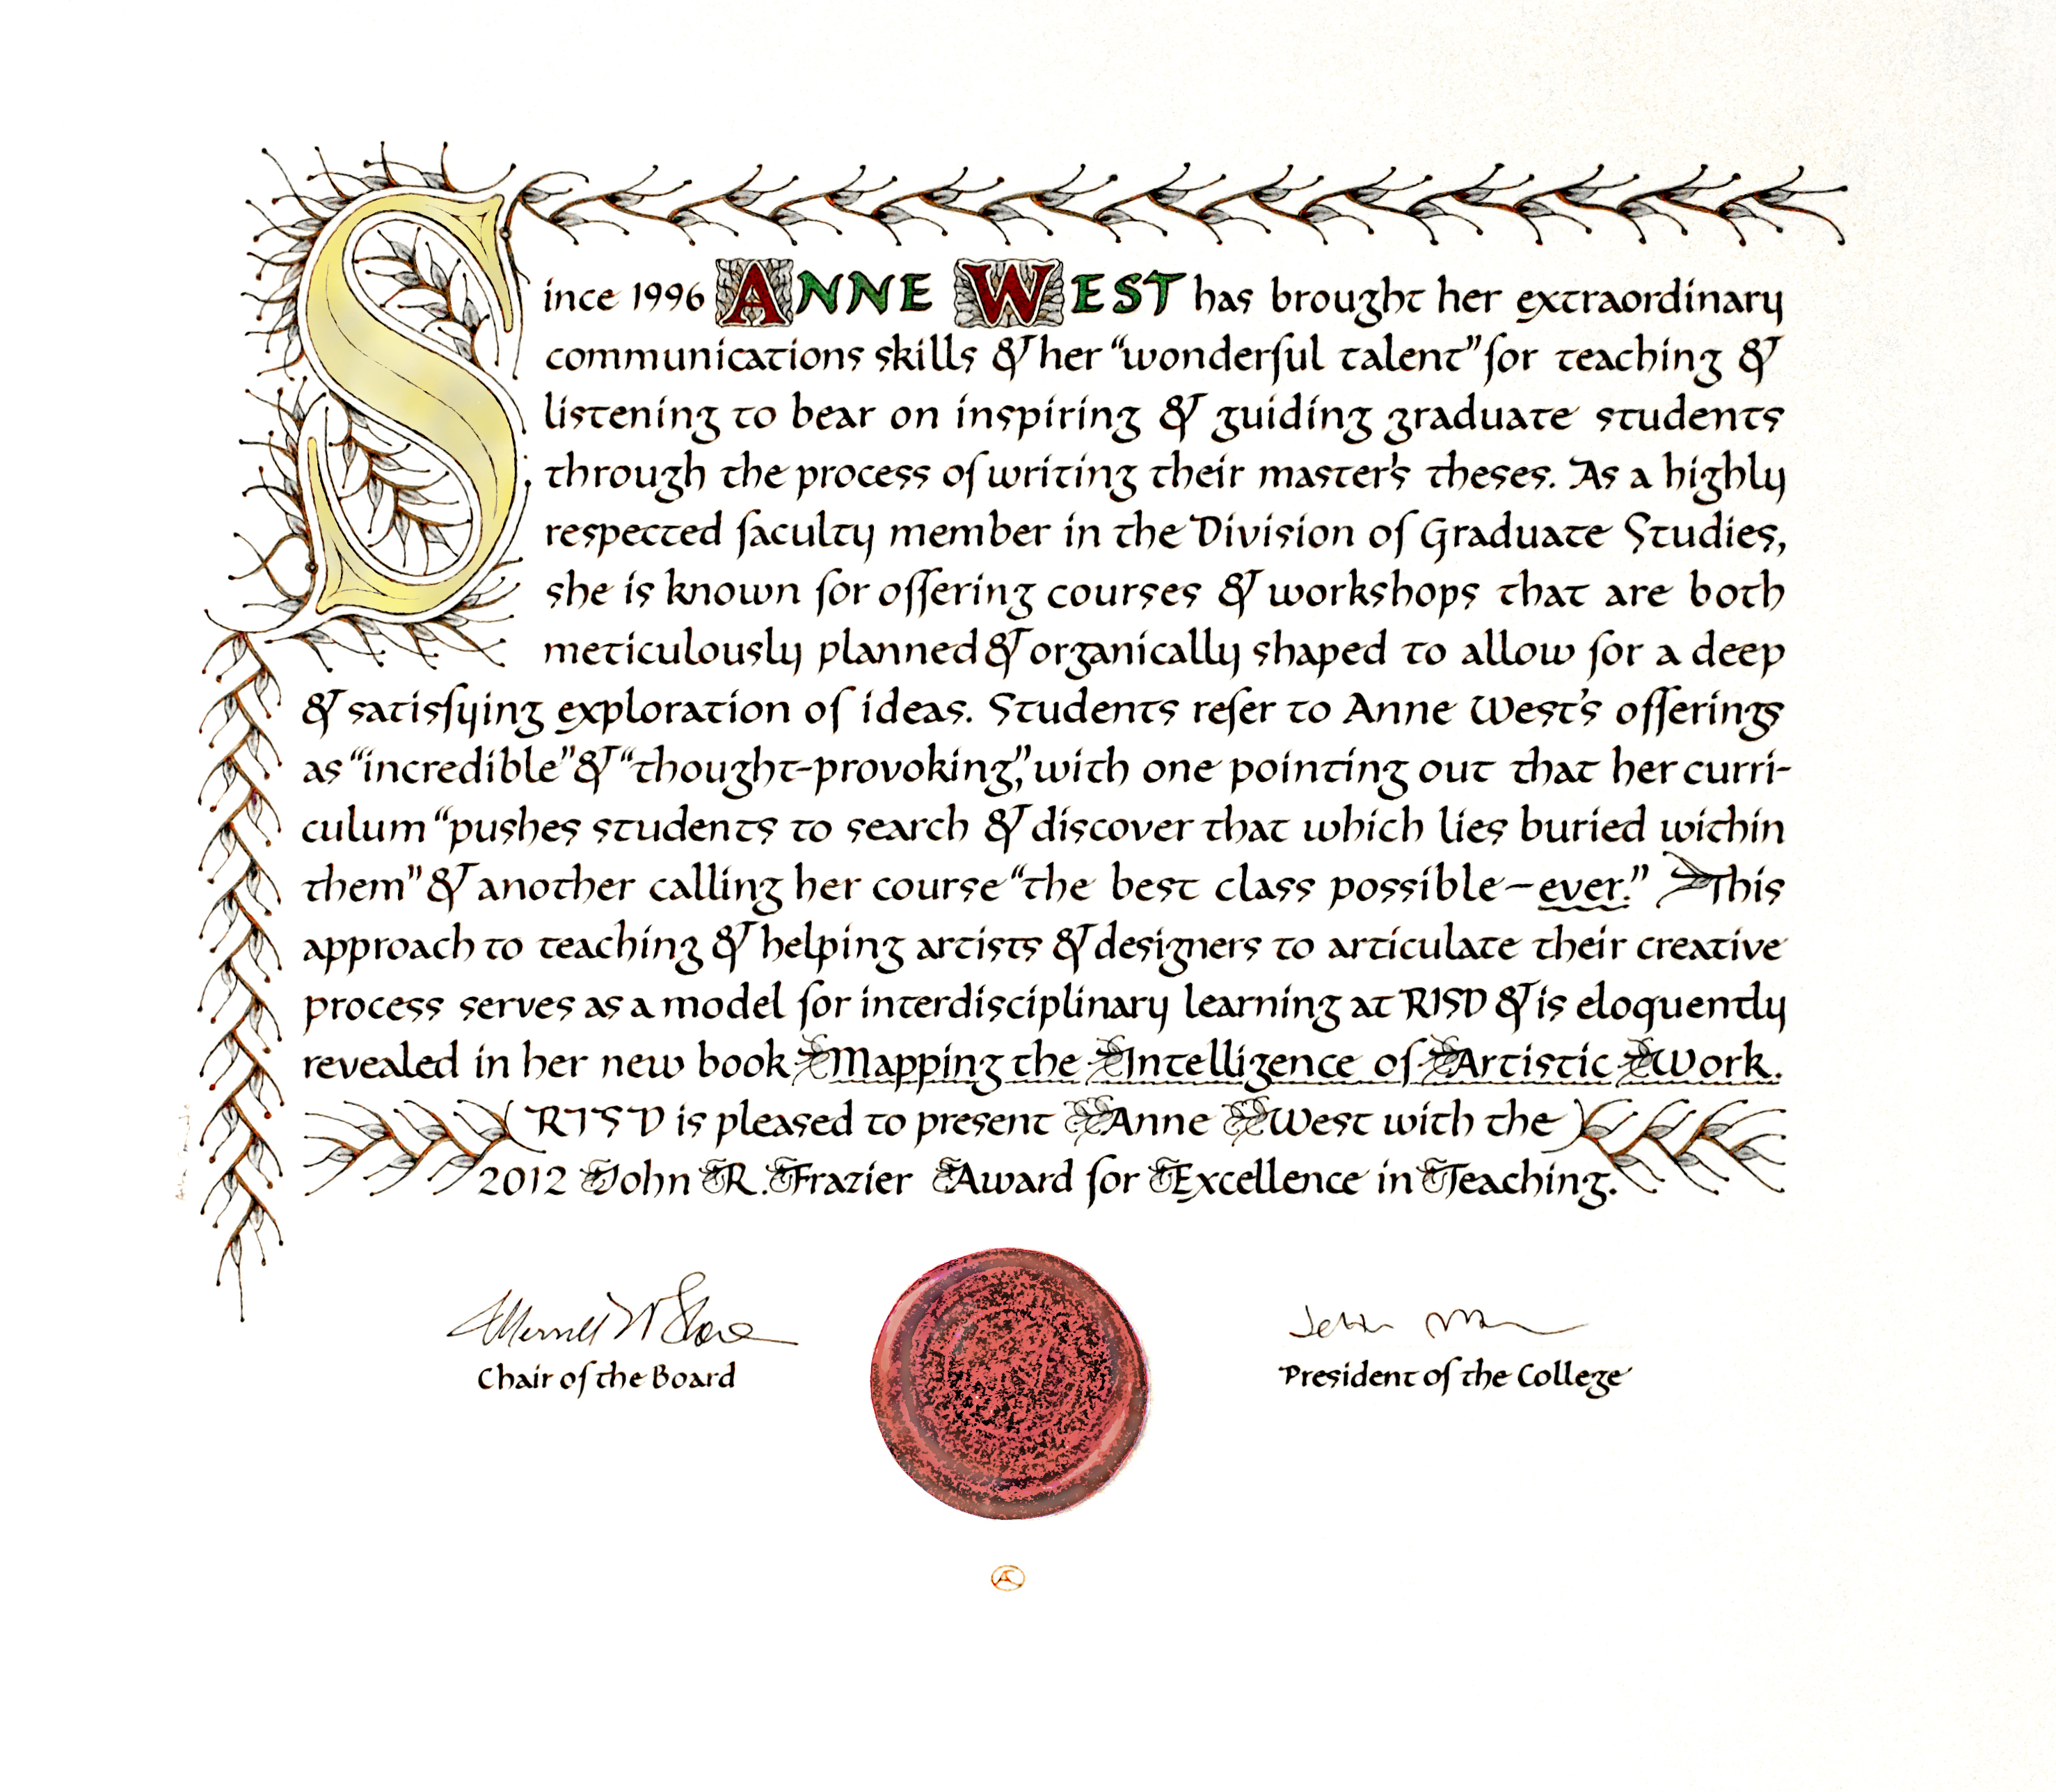 Since 1996 ANNE WEST has brought her extraordinary
communications skills & her “wonderful talent” for teaching &
listening to bear on inspiring & guiding graduate students
through the process of writing their master's theses. As a highly
respected faculty member in the Division of Graduate Studies,
she is known for offering courses & workshops that are both
meticulously planned & organically shaped to allow for a deep
& satisfying exploration of ideas. Students refer to Anne West's offerings
as “incredible” & “thought-provoking,” with one pointing out that her curri-
culum “pushes students to search & discover that which lies buried within
them” & another calling her course “the best class possible – ever.” This
approach to teaching & helping artists & designers to articulate their creative
process serves as a model for interdisciplinary learning at RISD & is eloquently
revealed in her new book Mapping the Intelligence of Artistic Work.
RISD is pleased to present Anne West with the
2012 John R. Frazier Award for Excellence in Teaching.
Chair of the Board
President of the College